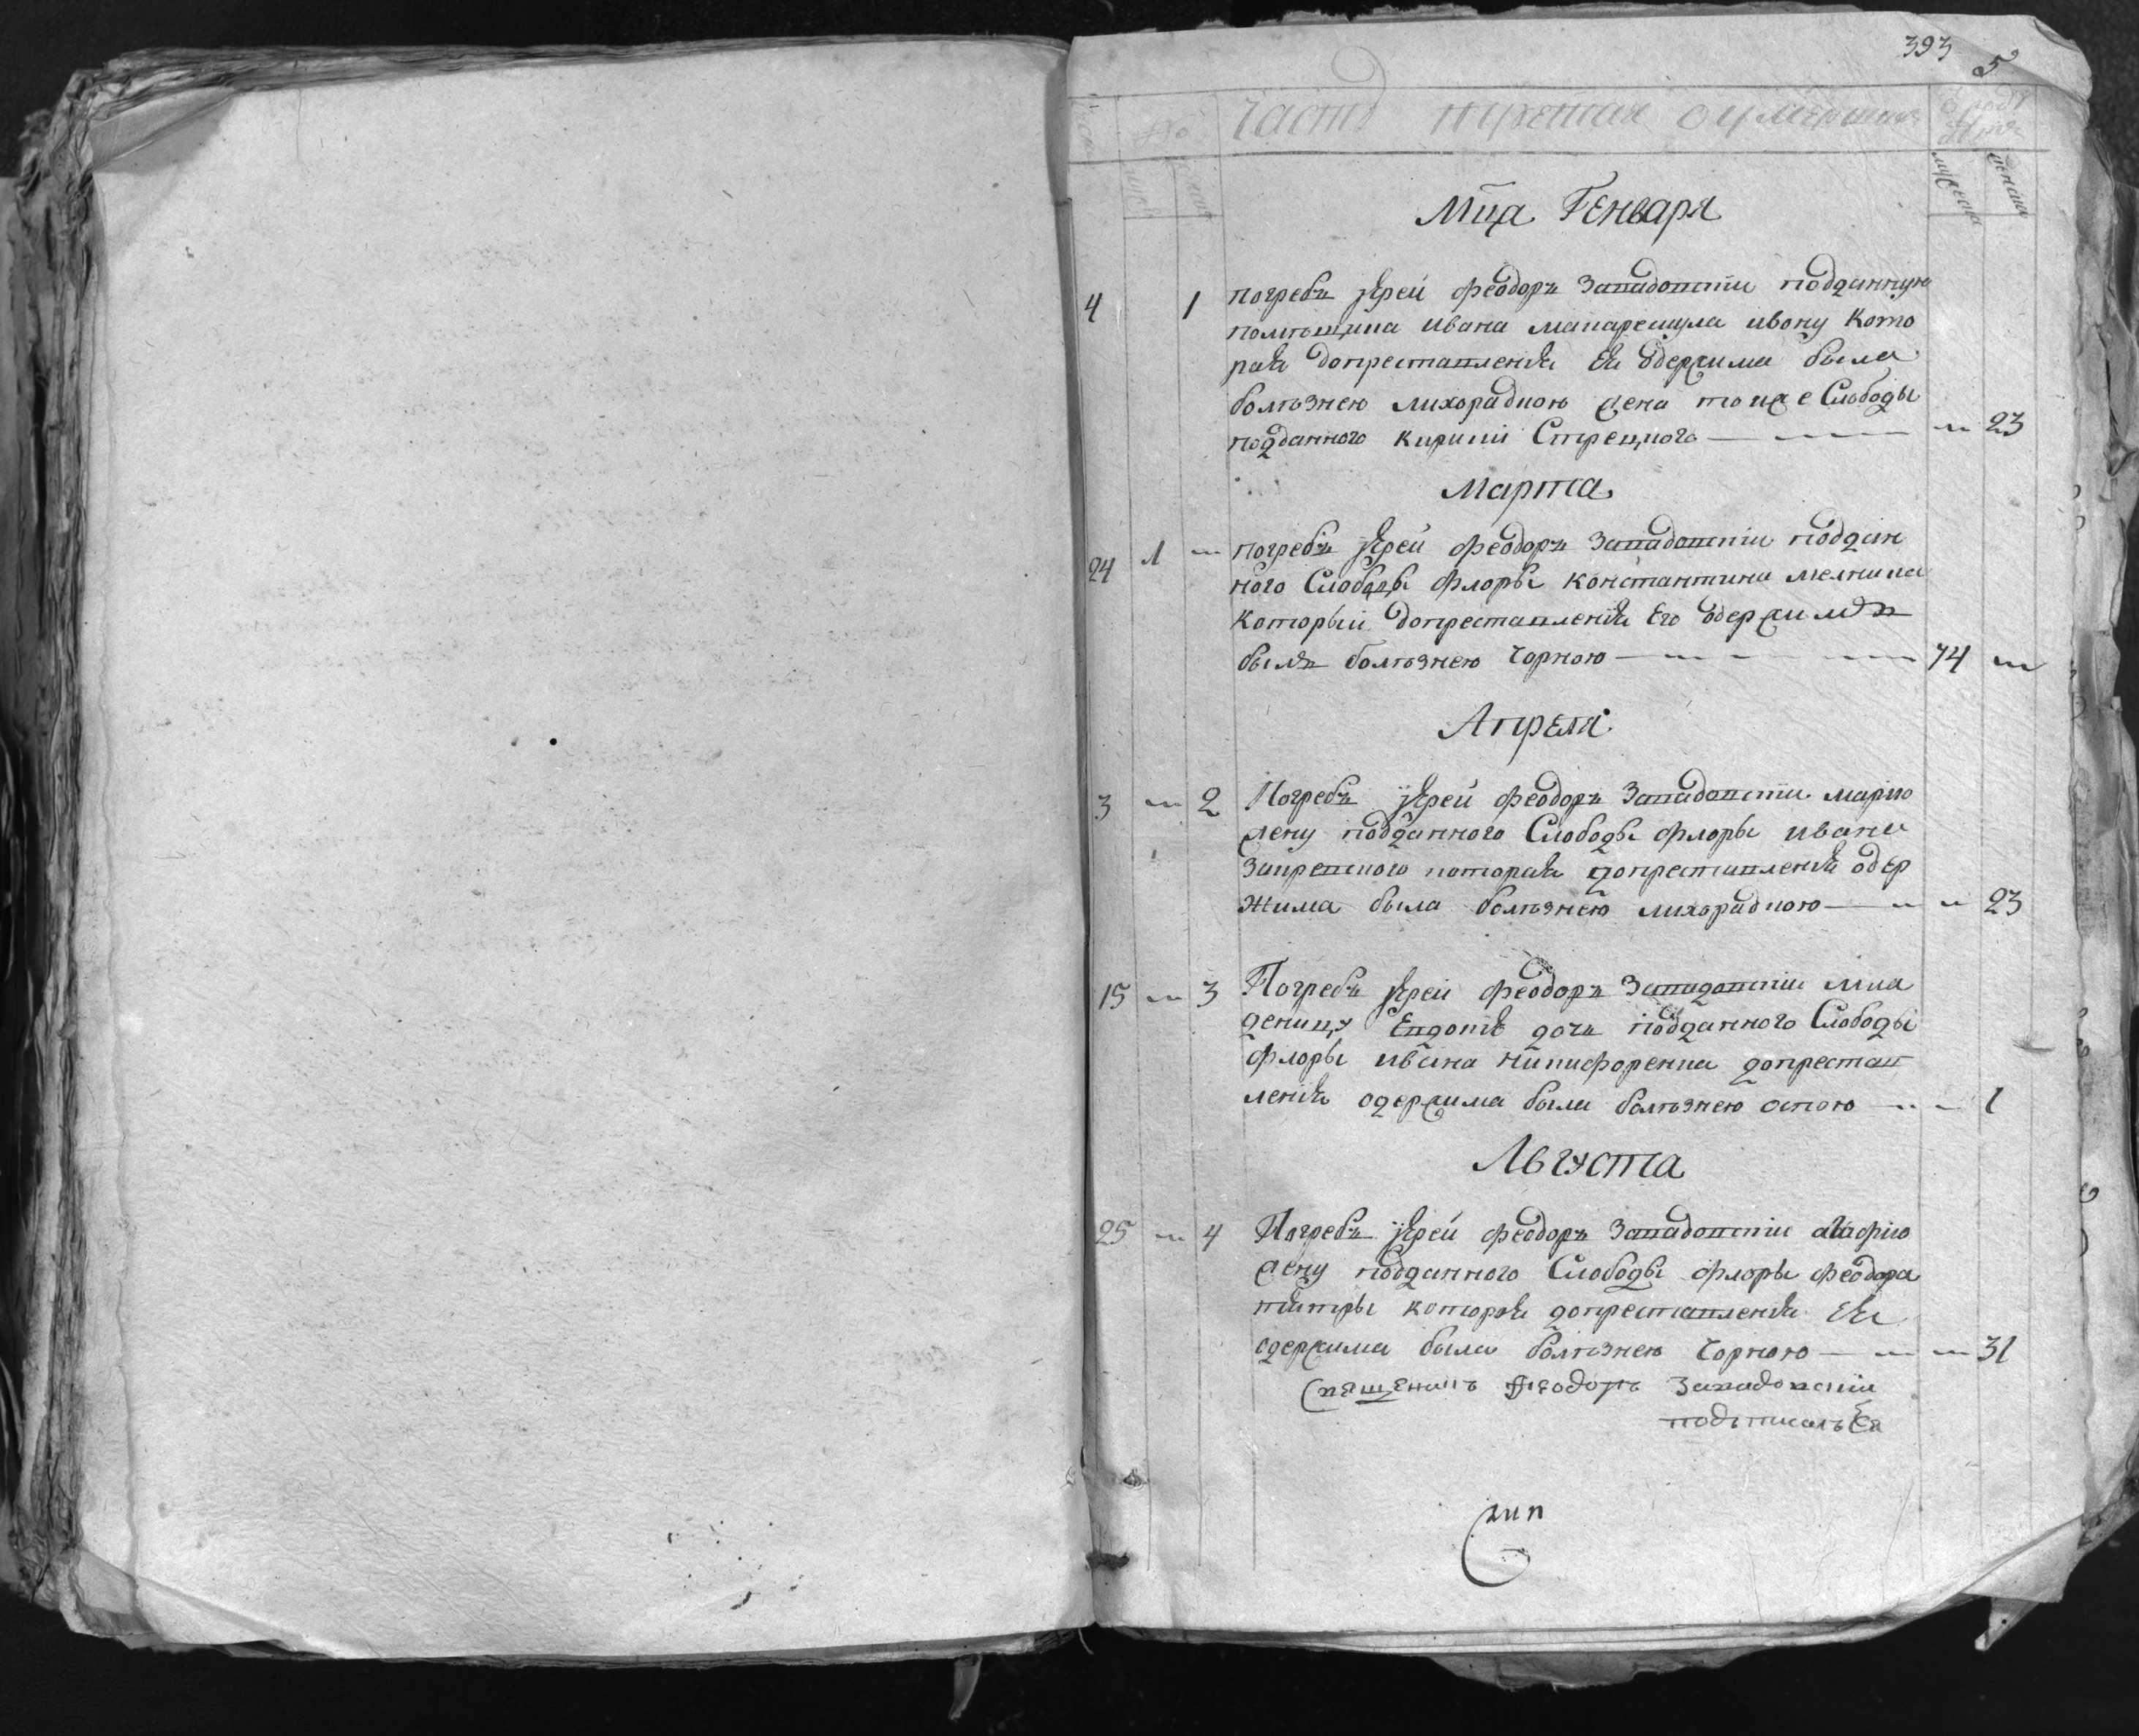 393
5
Часть третия оумершихъ
мужеска
женска
Мца Генваря
4 1 погребъ іерей феодоръ Западовскіи подданную
помѣщика ивана макарескула ивону кото
рая допреставленія ея одержима была
болѣзнею лихорадкою жена тоя же Слободы
подданного кирили 23
Марта
24 1 погребъ іерей феодоръ Западовскіи поддан
ного Слободы флоры константина мелника
который допреставленія Его одержимъ
былъ болѣзнею чорною 74
Апреля
3 2 Погребъ іерей феодоръ Западовскіи марию
жену подданного Слободы флоры ивана
которая допреставленія одер
жима была болѣзнею лихорадкою 23
15 3 Погребъ іерей феодоръ Западовскіи мла
деницу Евдокѣ дочь подданного Слободы
флоры ивана никифоренка допрестав
ленія одержима была болѣзнею оспою 1
Августа
25 4 Погребъ іерей феодоръ Западовскіи агафию
жену подданного Слободы флоры феодора
которая допреставленія Ея
одержима была болѣзнею чорною 31
Священикъ Феодоръ Западовскіи
подъписалъся